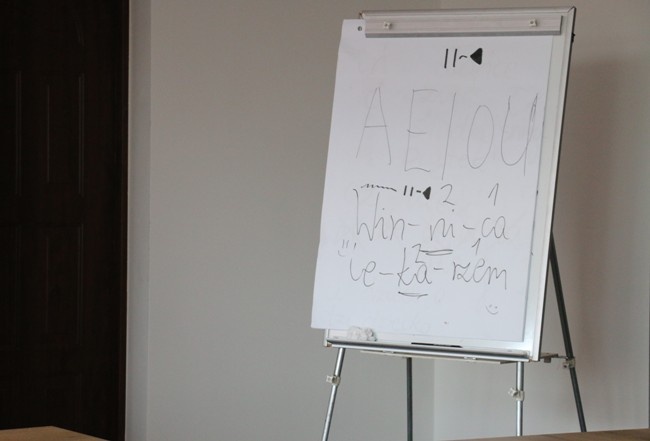 AEIOU
2 1
Win-ni-ca
2 1
le-ka-rzem